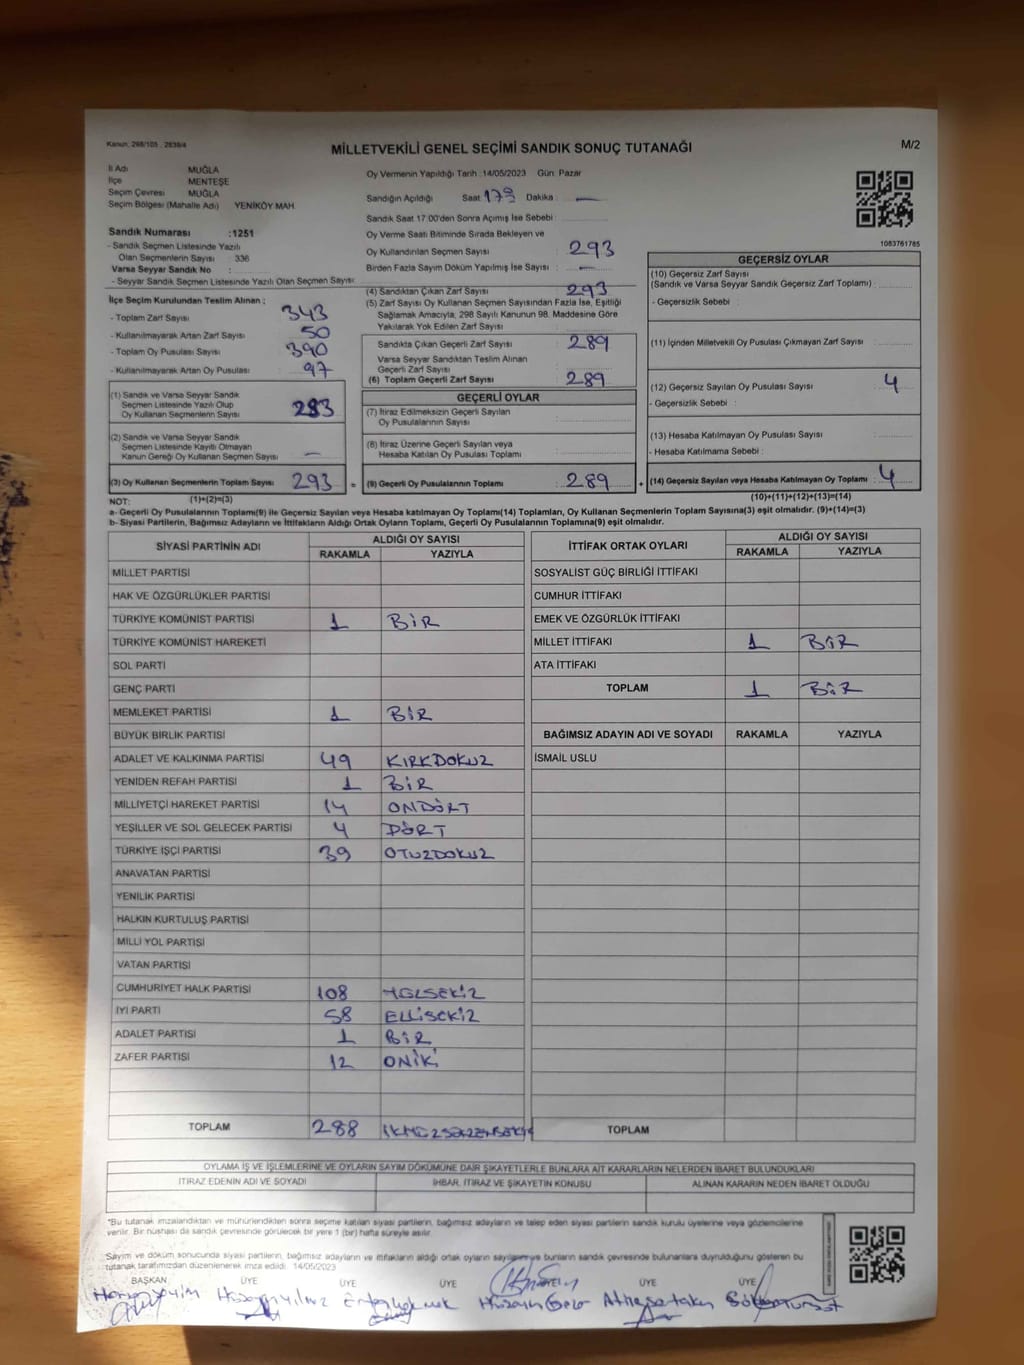 Kanun, 298/105 . 2839/4
MİLLETVEKİLİ GENEL SEÇİMİ SANDIK SONUÇ TUTANAĞI
M/2
İl Adı MUĞLA
İlçe MENTEŞE
Seçim Çevresi MUĞLA
Seçim Bölgesi (Mahalle Adı) YENİKÖY MAH
Sandık Numarası :1251
- Sandık Seçmen Listesinde Yazılı
Olan Seçmenlerin Sayısı : 336
Varsa Seyyar Sandık No :
- Seyyar Sandık Seçmen Listesinde Yazılı Olan Seçmen Sayısı:
İlçe Seçim Kurulundan Teslim Alınan ;
- Toplam Zarf Sayısı 343
- Kullanılmayarak Artan Zarf Sayısı 50
- Toplam Oy Pusulası Sayısı 390
- Kullanılmayarak Artan Oy Pusulası 97
(1) Sandık ve Varsa Seyyar Sandık
Seçmen Listesinde Yazılı Olup
Oy Kullanan Seçmenlerin Sayısı 293
(2) Sandık ve Varsa Seyyar Sandık
Seçmen Listesinde Kayıtlı Olmayan
Kanun Gereği Oy Kullanan Seçmen Sayısı —
(3) Oy Kullanan Seçmenlerin Toplam Sayısı 293
Oy Vermenin Yapıldığı Tarih :14/05/2023 Gün: Pazar
Sandığın Açıldığı Saat Dakika : —
Sandık Saat 17:00'den Sonra Açımış İse Sebebi :
Oy Verme Saati Bitiminde Sırada Bekleyen ve
Oy Kullandırılan Seçmen Sayısı 293
Birden Fazla Sayım Döküm Yapılmış İse Sayısı : —
(4) Sandıktan Çıkan Zarf Sayısı 293
(5) Zarf Sayısı Oy Kullanan Seçmen Sayısından Fazla İse, Eşitliği
Sağlamak Amacıyla, 298 Sayılı Kanunun 98. Maddesine Göre
Yakılarak Yok Edilen Zarf Sayısı :
Sandıkta Çıkan Geçerli Zarf Sayısı 289
Varsa Seyyar Sandıktan Teslim Alınan
Geçerli Zarf Sayısı
(6) Toplam Geçerli Zarf Sayısı 289
GEÇERLİ OYLAR
(7) İtiraz Edilmeksizin Geçerli Sayılan
Oy Pusulalarının Sayısı
(8) İtiraz Üzerine Geçerli Sayılan veya
Hesaba Katılan Oy Pusulası Toplamı
= (9) Geçerli Oy Pusulalarının Toplamı 289
1083761785
GEÇERSİZ OYLAR
(10) Geçersiz Zarf Sayısı
(Sandık ve Varsa Seyyar Sandık Geçersiz Zarf Toplamı) :
- Geçersizlik Sebebi :
(11) İçinden Milletvekili Oy Pusulası Çıkmayan Zarf Sayısı
(12) Geçersiz Sayılan Oy Pusulası Sayısı 4
- Geçersizlik Sebebi :
(13) Hesaba Katılmayan Oy Pusulası Sayısı
- Hesaba Katılmama Sebebi :
+ (14) Geçersiz Sayılan veya Hesaba Katılmayan Oy Toplamı 4
NOT: (1)+(2)=(3) (10)+(11)+(12)+(13)=(14)
a- Geçerli Oy Pusulalarının Toplamı(9) ile Geçersiz Sayılan veya Hesaba katılmayan Oy Toplamı(14) Toplamları, Oy Kullanan Seçmenlerin Toplam Sayısına(3) eşit olmalıdır. (9)+(14)=(3)
b- Siyasi Partilerin, Bağımsız Adayların ve İttifakların Aldığı Ortak Oyların Toplamı, Geçerli Oy Pusulalarının Toplamına(9) eşit olmalıdır.
SİYASİ PARTİNİN ADI ALDIĞI OY SAYISI
RAKAMLA YAZIYLA
MİLLET PARTİSİ
HAK VE ÖZGÜRLÜKLER PARTİSİ
TÜRKİYE KOMÜNİST PARTİSİ 1 BİR
TÜRKİYE KOMÜNİST HAREKETİ
SOL PARTİ
GENÇ PARTİ
MEMLEKET PARTİSİ 1 BİR
BÜYÜK BİRLİK PARTİSİ
ADALET VE KALKINMA PARTİSİ 49 KIRKDOKUZ
YENİDEN REFAH PARTİSİ 1 BİR
MİLLİYETÇİ HAREKET PARTİSİ 14 ONDÖRT
YEŞİLLER VE SOL GELECEK PARTİSİ 4 DÖRT
TÜRKİYE İŞÇİ PARTİSİ 39 OTUZDOKUZ
ANAVATAN PARTİSİ
YENİLİK PARTİSİ
HALKIN KURTULUŞ PARTİSİ
MİLLİ YOL PARTİSİ
VATAN PARTİSİ
CUMHURİYET HALK PARTİSİ 108 YÜZSEKİZ
İYİ PARTİ 58 ELLİSEKİZ
ADALET PARTİSİ 1 BİR
ZAFER PARTİSİ 12 ONİKİ
TOPLAM 288
İTTİFAK ORTAK OYLARI ALDIĞI OY SAYISI
RAKAMLA YAZIYLA
SOSYALİST GÜÇ BİRLİĞİ İTTİFAKI
CUMHUR İTTİFAKI
EMEK VE ÖZGÜRLÜK İTTİFAKI
MİLLET İTTİFAKI 1 BİR
ATA İTTİFAKI
TOPLAM 1 BİR
BAĞIMSIZ ADAYIN ADI VE SOYADI RAKAMLA YAZIYLA
İSMAİL USLU
TOPLAM
OYLAMA İŞ VE İŞLEMLERİNE VE OYLARIN SAYIM DÖKÜMÜNE DAİR ŞİKAYETLERLE BUNLARA AİT KARARLARIN NELERDEN İBARET BULUNDUKLARI
İTİRAZ EDENİN ADI VE SOYADI İHBAR, İTİRAZ VE ŞİKAYETİN KONUSU ALINAN KARARIN NEDEN İBARET OLDUĞU
*Bu tutanak imzalandıktan ve mühürlendikten sonra seçime katılan siyasi partilerin, bağımsız adayların ve talep eden siyasi partilerin sandık kurulu üyelerine veya gözlemcilerine
verilir. Bir nüshası da sandık çevresinde görülecek bir yere 1 (bir) hafta süreyle asılır.
Sayım ve döküm sonucunda siyasi partilerin, bağımsız adayların ve ittifakların aldığı ortak oyların sayılarını ve bunların sandık çevresinde bulunanlara duyrulduğunu gösteren bu
tutanak tarafımızdan düzenlenerek imza edildi. 14/05/2023
BAŞKAN ÜYE ÜYE ÜYE ÜYE ÜYE ÜYE